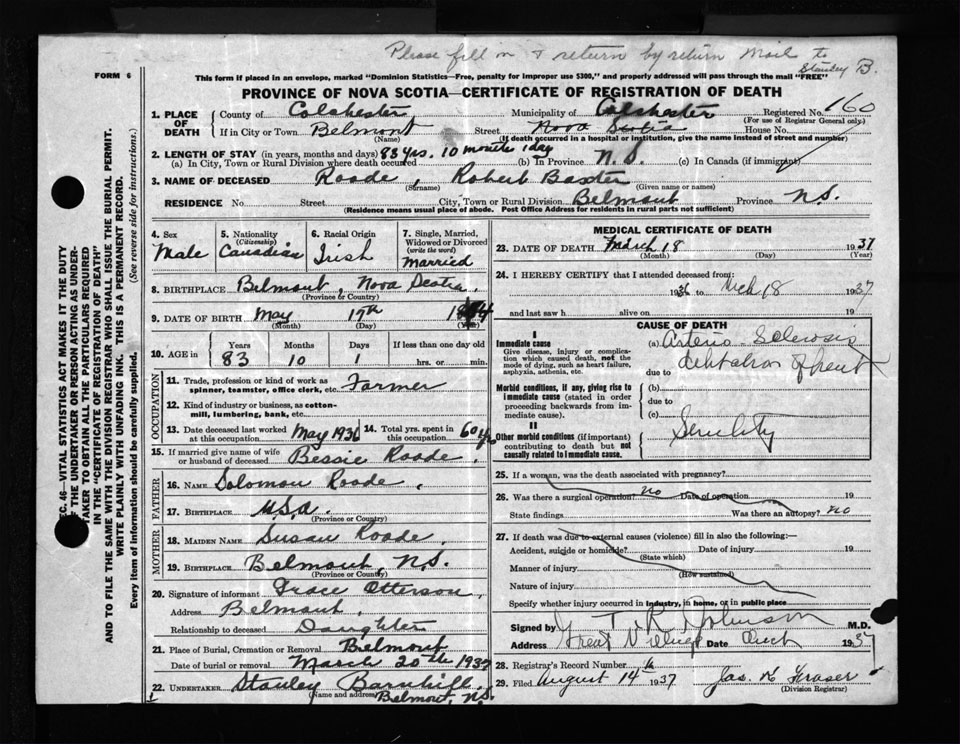 Please fill in & return by return mail to
Stanley B.
FORM 6
This form if placed in an envelope, marked "Dominion Statistics—Free, penalty for improper use $300," and properly addressed will pass through the mail "FREE"
PROVINCE OF NOVA SCOTIA—CERTIFICATE OF REGISTRATION OF DEATH
1. PLACE OF DEATH County of Colchester Municipality of Colchester Registered No. 160
(For use of Registrar General only.)
If in City or Town Belmont Street Nova Scotia House No.
(Name) (If death occurred in a hospital or institution, give the name instead of street and number)
2. LENGTH OF STAY (in years, months and days) 83 yrs. 10 months 1 day
(a) In City, Town or Rural Division where death occurred (b) In Province N.S. (c) In Canada (if immigrant)
3. NAME OF DECEASED Roode, Robert Baxter
(Surname) (Given name or names)
RESIDENCE No. Street City, Town or Rural Division Belmont Province N.S.
(Residence means usual place of abode. Post Office Address for residents in rural parts not sufficient)
4. Sex Male
5. Nationality (Citizenship) Canadian
6. Racial Origin Irish
7. Single, Married, Widowed or Divorced (write the word) Married
8. BIRTHPLACE Belmont, Nova Scotia
(Province or Country)
9. DATE OF BIRTH May 17th 18
(Month) (Day) (Year)
10. AGE in Years 83 Months 10 Days 1 If less than one day old hrs. or min.
OCCUPATION
11. Trade, profession or kind of work as spinner, teamster, office clerk, etc. Farmer
12. Kind of industry or business, as cotton-mill, lumbering, bank, etc.
13. Date deceased last worked at this occupation May 1936 14. Total yrs. spent in this occupation 60 yrs
15. If married give name of wife or husband of deceased Bessie Roode.
FATHER
16. NAME Solomon Roode.
17. BIRTHPLACE U.S.A.
(Province or Country)
MOTHER
18. MAIDEN NAME Susan Roode.
19. BIRTHPLACE Belmont, N.S.
(Province or Country)
20. Signature of informant Grace Otterson,
Address Belmont,
Relationship to deceased Daughter
21. Place of Burial, Cremation or Removal Belmont
Date of burial or removal March 20th 1937
22. UNDERTAKER Stanley Barnhill,
(Name and address) Belmont, N.S.
MEDICAL CERTIFICATE OF DEATH
23. DATE OF DEATH March 18 1937
(Month) (Day) (Year)
24. I HEREBY CERTIFY that I attended deceased from
1936 to Mch 18 1937
and last saw h alive on 19
CAUSE OF DEATH
I
Immediate cause
Give disease, injury or complication which caused death, not the mode of dying, such as heart failure, asphyxia, asthenia, etc.
(a) Arterio-Sclerosis
dilitation of heart
due to
Morbid conditions, if any, giving rise to immediate cause (stated in order proceeding backwards from immediate cause).
(b)
due to
(c)
II
Other morbid conditions (if important) contributing to death but not causally related to immediate cause.
Senility
25. If a woman, was the death associated with pregnancy?
26. Was there a surgical operation? no Date of operation 19
State findings Was there an autopsy? no
27. If death was due to external causes (violence) fill in also the following:—
Accident, suicide or homicide? Date of injury 19
(State which)
Manner of injury
(How sustained)
Nature of injury
Specify whether injury occurred in industry, in home, or in public place
Signed by T. R. Johnson M.D.
Address Great Village Date 1937
28. Registrar's Record Number
29. Filed August 14 1937 Jas. K Fraser
(Division Registrar)
SEC. 46—VITAL STATISTICS ACT MAKES IT THE DUTY
OF THE UNDERTAKER OR PERSON ACTING AS UNDERTAKER TO OBTAIN ALL THE PARTICULARS REQUIRED
IN THE "CERTIFICATE OF REGISTRATION OF DEATH"
AND TO FILE THE SAME WITH THE DIVISION REGISTRAR WHO SHALL ISSUE THE BURIAL PERMIT.
WRITE PLAINLY WITH UNFADING INK. THIS IS A PERMANENT RECORD.
Every item of information should be carefully supplied. (See reverse side for instructions.)